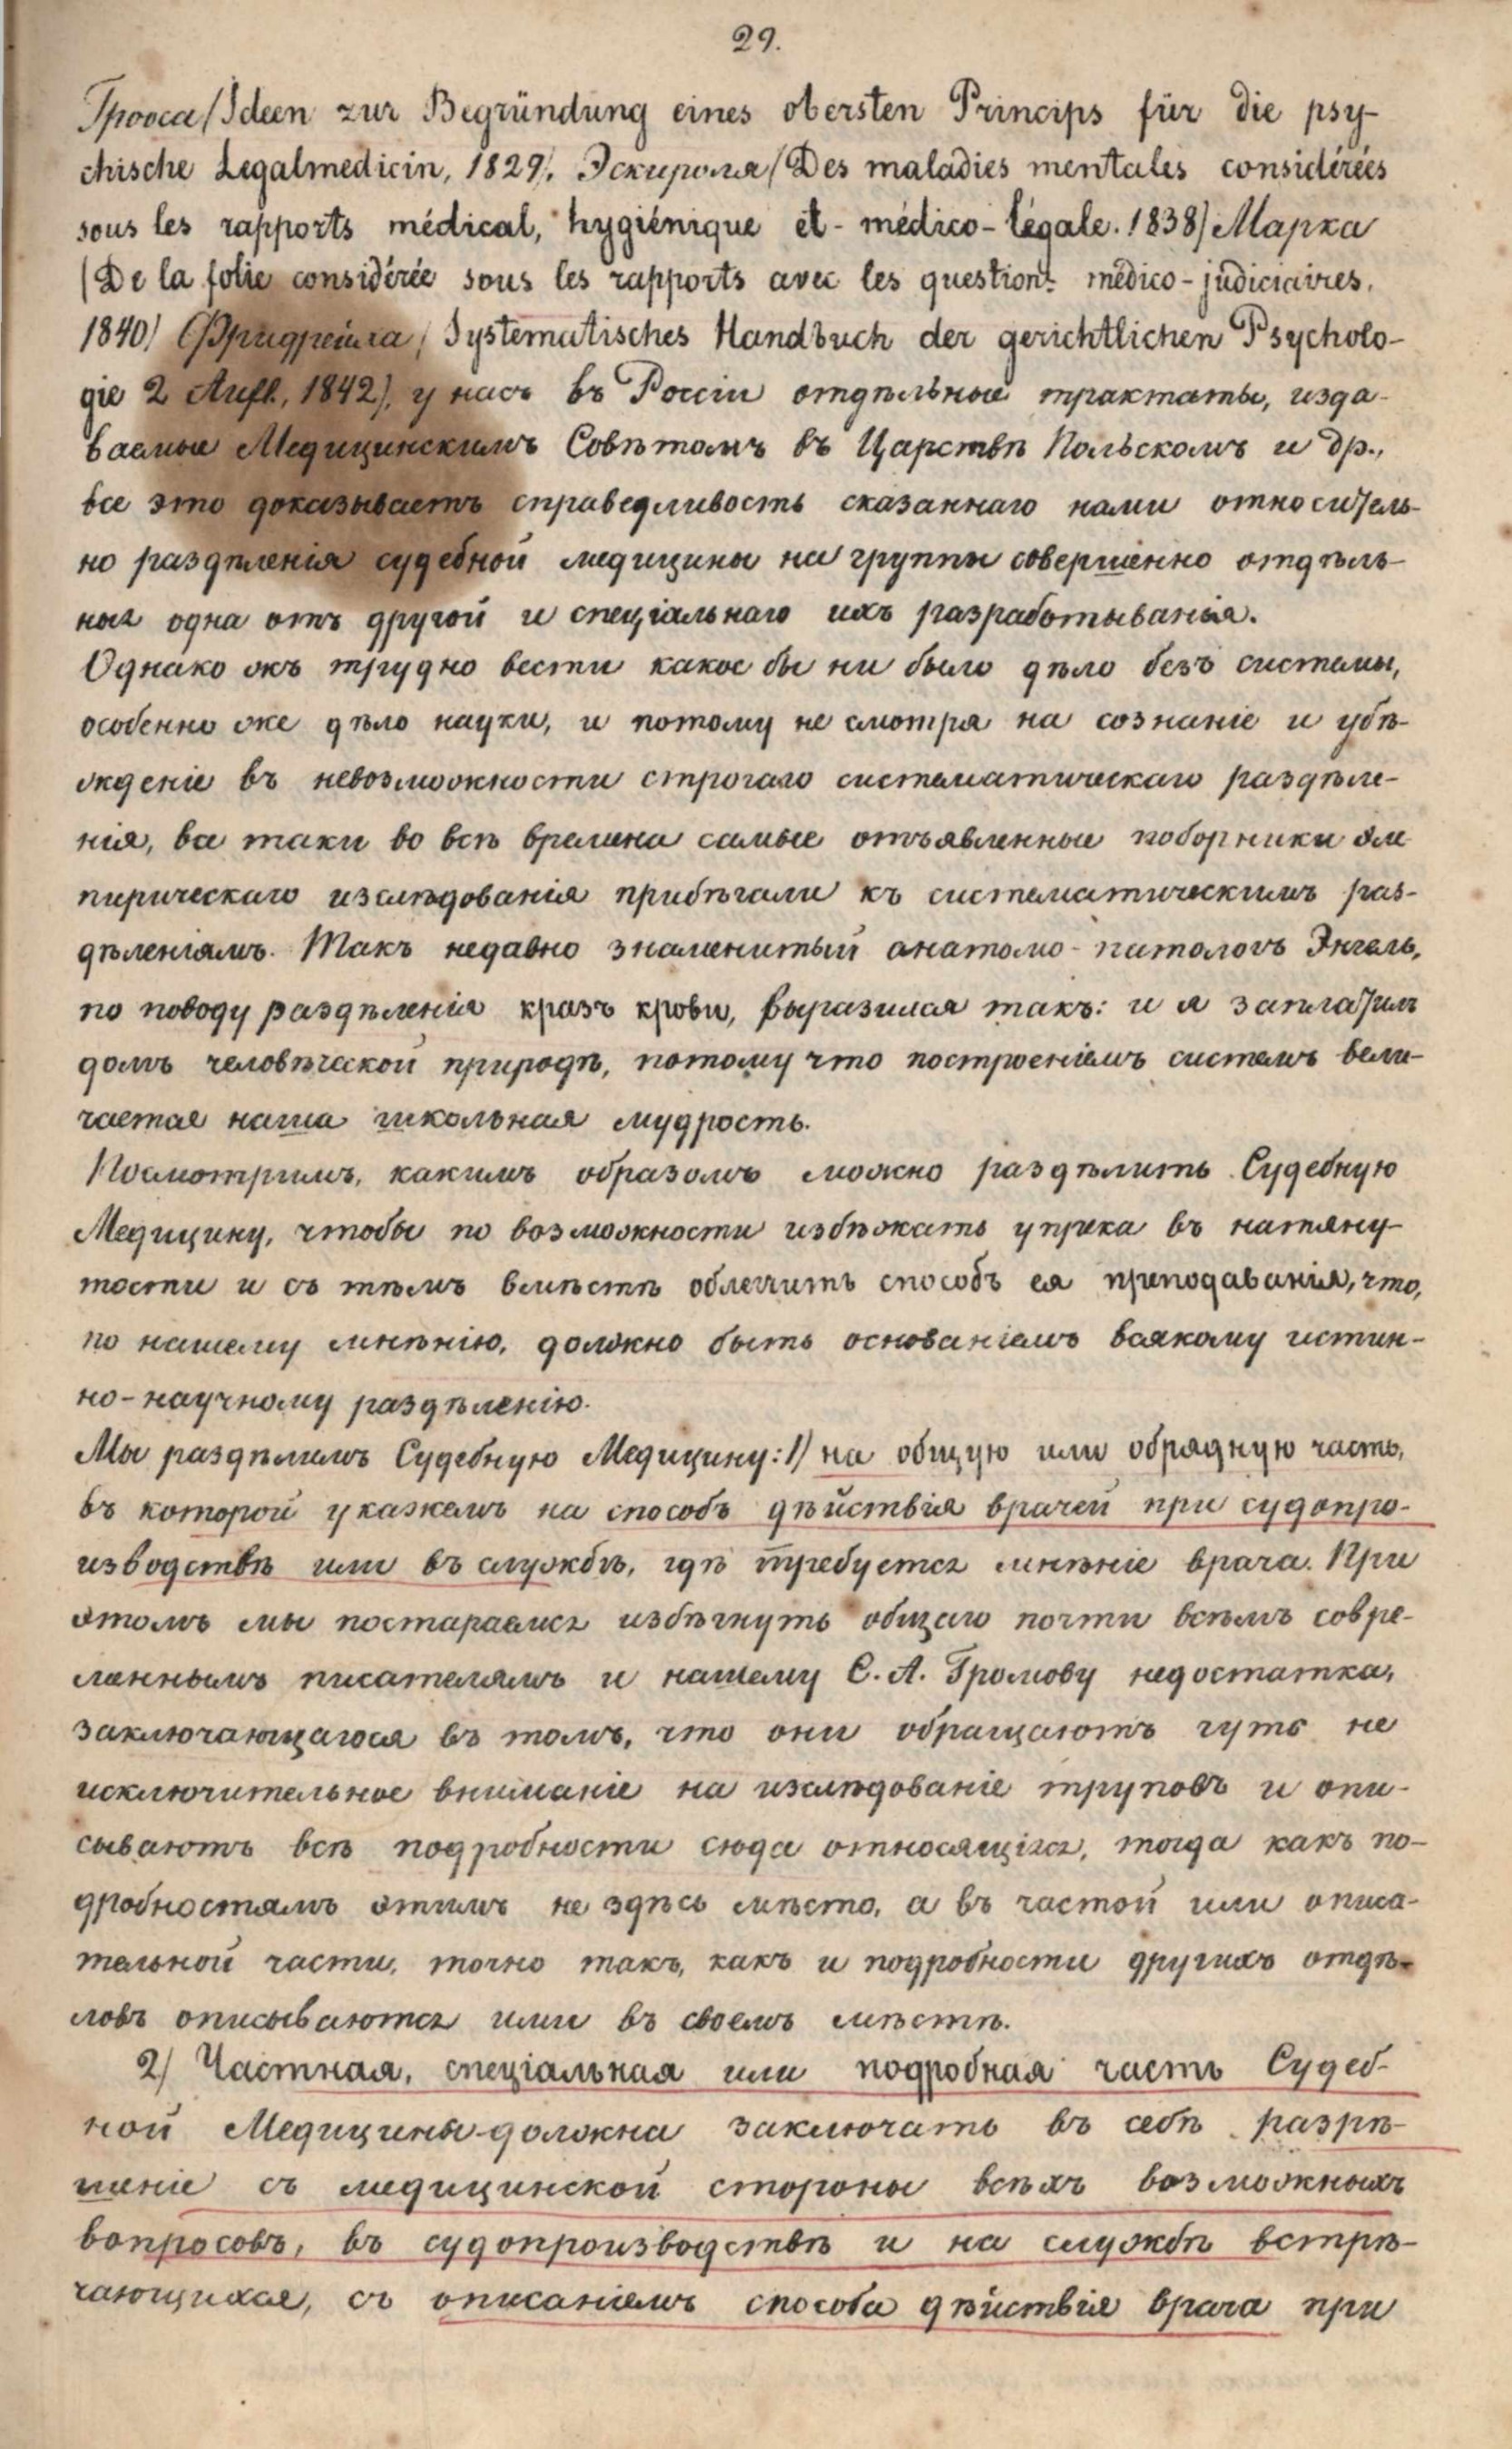 29.
Грооса (Ideen zur Begründung eines obersten Princips für die psy-
chische Legalmedicin, 1829), Эскироля (Des maladies mentales considérées
sous les rapports médical, hygiénique et - médico-légale. 1838) Марка
(De la folie considérée sous les rapports avec les questions médico-judiciaires.
1840) Фридрейха (Systematisches Handbuch der gerichtlichen Psycholo-
gie 2 Aufl., 1842), у насъ въ Россіи отдѣльные трактаты, изда-
ваемые Медицинскимъ Совѣтомъ въ Царствѣ Польскомъ и др.,
все это доказываетъ справедливость сказаннаго нами относитель-
но раздѣленія судебной медицины на группы совершенно отдѣль-
ныя одна отъ другой и спеціальнаго ихъ разработыванья.
Однако жъ трудно вести какое бы ни было дѣло безъ системы,
особенно же дѣло науки, и потому не смотря на сознаніе и убѣ-
жденіе въ невозможности строгаго систематическаго раздѣле-
нія, все таки во всѣ времена самые отъявленные поборники эм
пирическаго изслѣдованія прибѣгали къ систематическимъ раз-
дѣленіямъ. Такъ недавно знаменитый анатомо-патологъ Энгель,
по поводу раздѣленія кразъ крови, выразился такъ: и я заплатилъ
долгъ человѣческой природѣ, потому что построеніемъ системъ вели-
чается наша школьная мудрость.
Посмотримъ, какимъ образомъ можно раздѣлить Судебную
Медицину, чтобы по возможности избѣжать упрека въ натяну-
тости и съ тѣмъ вмѣстѣ облегчить способъ ея преподаванія, что,
по нашему мнѣнію, должно быть основаніемъ всякому истин-
но-научному раздѣленію.
Мы раздѣлимъ Судебную Медицину: 1) на общую или обрядную часть,
въ которой укажемъ на способъ дѣйствія врачей при судопро-
изводствѣ или въ службѣ, гдѣ требуется мнѣніе врача. При
этомъ мы постараемся избѣгнуть общаго почти всѣмъ совре-
меннымъ писателямъ и нашему С. А. Громову недостатка,
заключающагося въ томъ, что они обращаютъ чуть не
исключительное вниманіе на изслѣдованіе труповъ и опи-
сываютъ всѣ подробности сюда относящіяся, тогда какъ по-
дробностямъ этимъ не здѣсь мѣсто, а въ частой или описа-
тельной части, точно такъ, какъ и подробности другихъ отдѣ-
ловъ описываются ими въ своемъ мѣстѣ.
2) Частная, спеціальная или подробная часть Судеб-
ной Медицины должна заключать въ себѣ разрѣ-
шеніе съ медицинской стороны всѣхъ возможныхъ
вопросовъ, въ судопроизводствѣ и на службѣ встрѣ-
чающихся, съ описаніемъ способа дѣйствія врача при